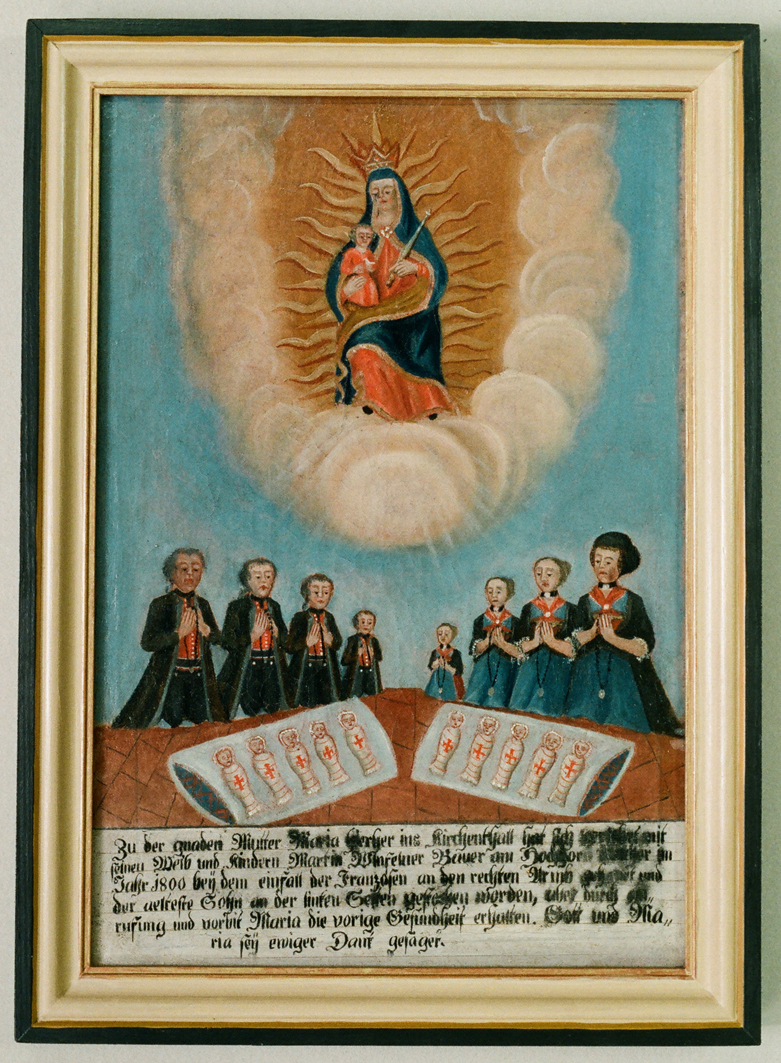 Zu der gnaden Mutter Maria herher ins Kirchenthall hat sich verlobt mit
seinen Weib und Kindern Martin Bauer am
Jahr 1800 bey dem einfall der Franzosen an den rechten Arm und
der aelteste Sohn an der linken Seiten gestochen worden, aber durch an„
rufung und vorbit Maria die vorige Gesundheit erhalten. Gott und Ma„
ria sey ewiger Dank gesaget.